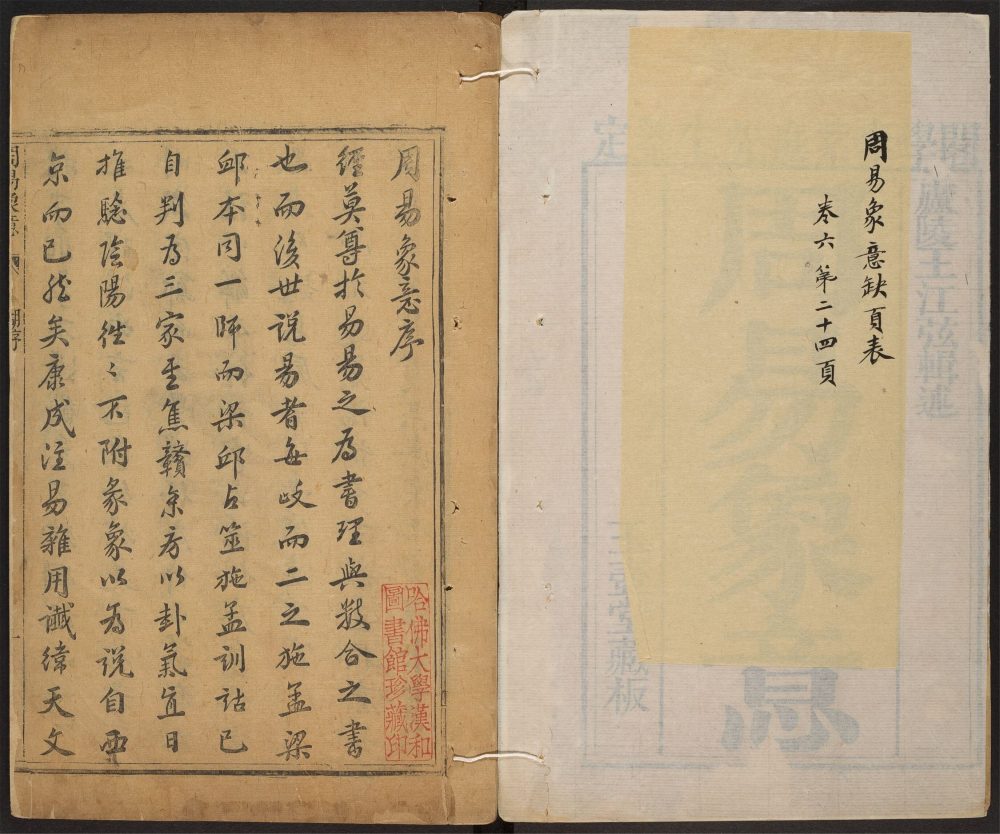 周易象意缺頁表
卷六第二十四頁
廬陵王江弦輯述
三壺堂藏板
周易象意序
經莫尊於易易之為書理與數合之書
也而後世說易者每歧而二之施孟梁
邱本同一師而梁邱占筮施孟訓詁已
自判為三家至焦贛京房以卦氣直日
推驗陰陽徃〻不附彖象以為說自西
京而已然矣康成注易雜用讖緯天文
哈佛大學漢和
圖書館珍藏印
周易象意
胡序